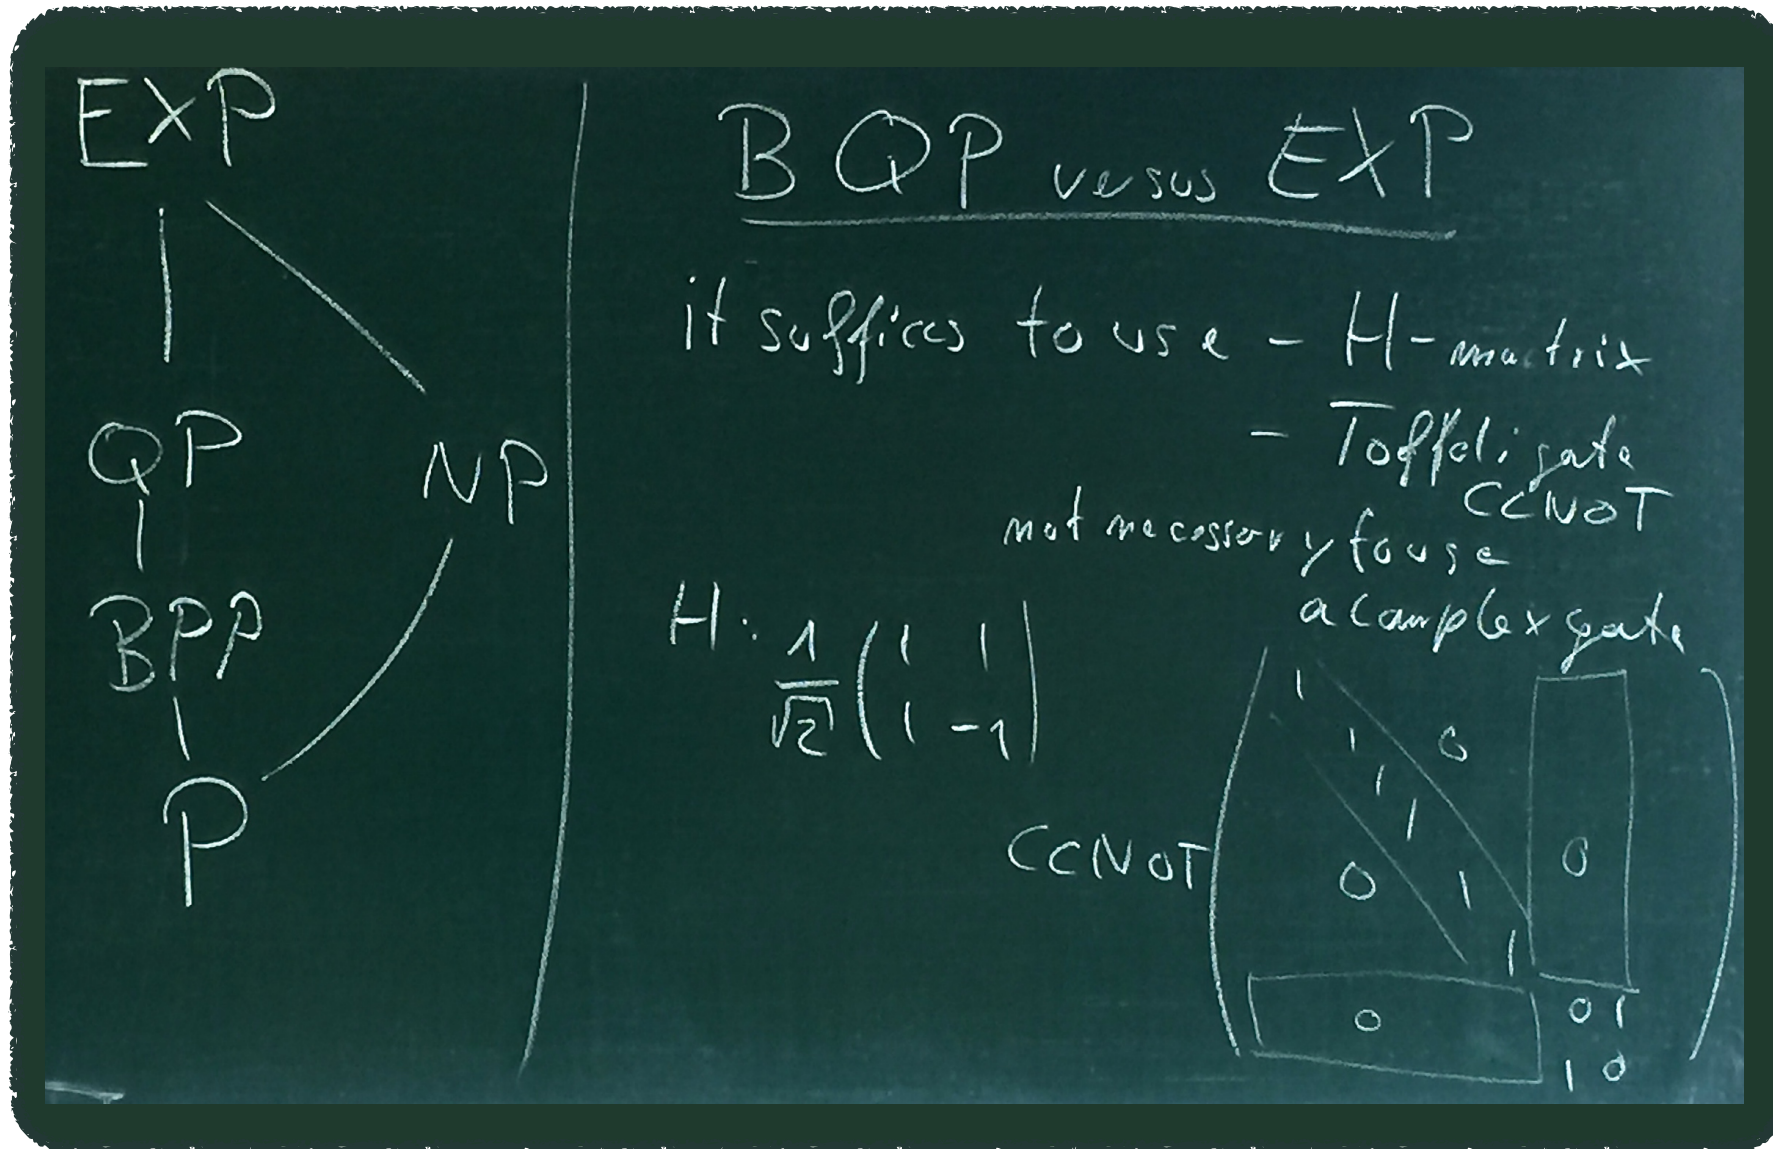 EXP
QP
NP
BPP
P
BQP versus EXP
it suffices to use - H-matrix
- Toffoli gate
CCNOT
not necessary to use
a complex gate
H: 1/√2 ( 1 1
1 -1 )
CCNOT
1
1 0
1
1
0 1 0
1
0 0 1
1 0